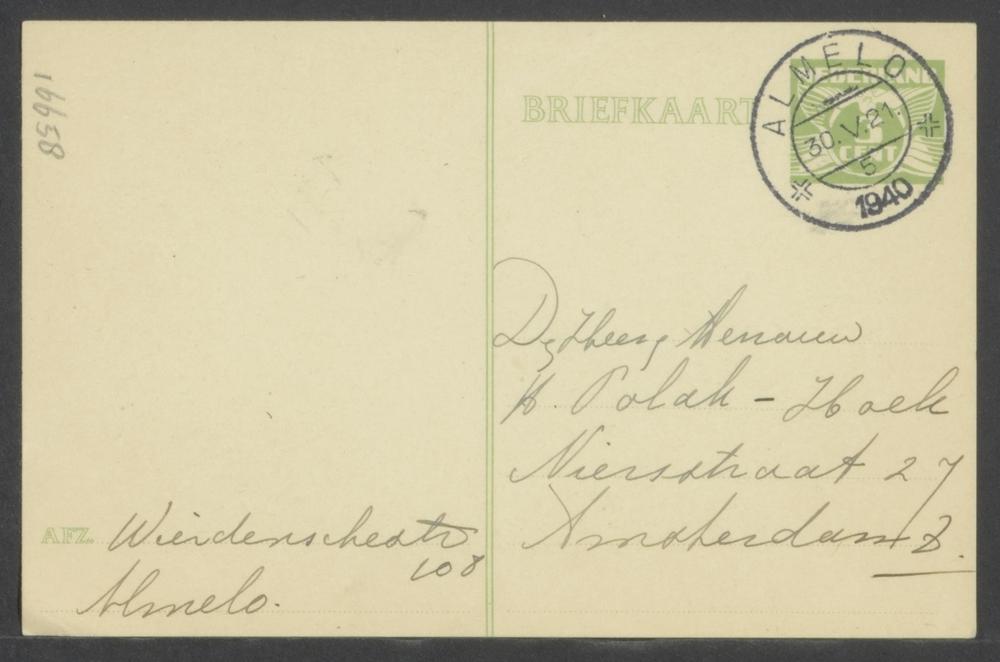 16638
BRIEFKAART
NEDERLAND
CENT
ALMELO
30.V.21.
5
1940
Heer Mevrouw
Polak - Hoek
Niersstraat 27
Amsterdam Z.
AFZ. Wierdenschestr
108
Almelo.